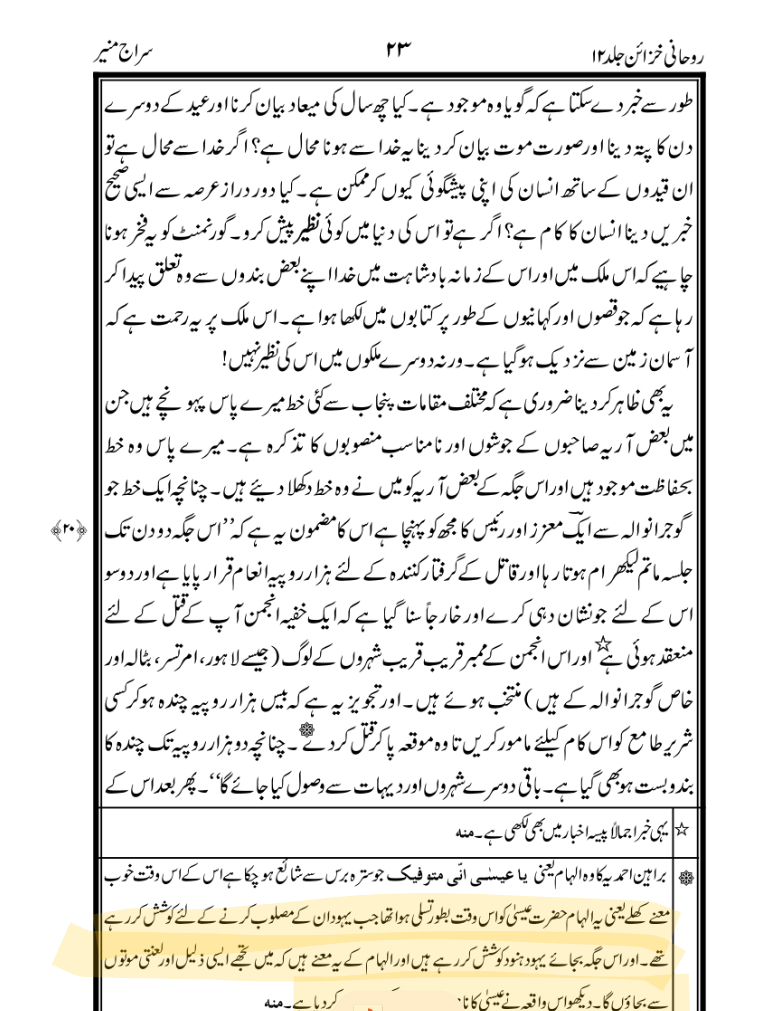 روحانی خزائن جلد ۱۲ ۲۳ سراج منیر
طور سے خبر دے سکتا ہے کہ گویا وہ موجود ہے۔ کیا چھ سال کی میعاد بیان کرنا اور عید کے دوسرے
دن کا پتہ دینا اور صورت موت بیان کر دینا یہ خدا سے ہونا محال ہے؟ اگر خدا سے محال ہے تو
ان قیدوں کے ساتھ انسان کی اپنی پیشگوئی کیوں کر ممکن ہے۔ کیا دور دراز عرصہ سے ایسی صحیح
خبریں دینا انسان کا کام ہے؟ اگر ہے تو اس کی دنیا میں کوئی نظیر پیش کرو۔ گورنمنٹ کو یہ فخر ہونا
چاہیے کہ اس ملک میں اور اس کے زمانہ بادشاہت میں خدا اپنے بعض بندوں سے وہ تعلق پیدا کر
رہا ہے کہ جو قصوں اور کہانیوں کے طور پر کتابوں میں لکھا ہوا ہے۔ اس ملک پر یہ رحمت ہے کہ
آسمان زمین سے نزدیک ہو گیا ہے۔ ورنہ دوسرے ملکوں میں اس کی نظیر نہیں!
یہ بھی ظاہر کر دینا ضروری ہے کہ مختلف مقامات پنجاب سے کئی خط میرے پاس پہونچے ہیں جن
میں بعض آریہ صاحبوں کے جوشوں اور نامناسب منصوبوں کا تذکرہ ہے۔ میرے پاس وہ خط
بحفاظت موجود ہیں اور اس جگہ کے بعض آریہ کو میں نے وہ خط دکھلا دیئے ہیں۔ چنانچہ ایک خط جو
گوجرانوالہ سے ایک معزز اور رئیس کا مجھ کو پہنچا ہے اس کا مضمون یہ ہے کہ ’’اس جگہ دو دن تک
﴿۲۰﴾
جلسہ ماتم لیکھرام ہوتا رہا اور قاتل کے گرفتار کنندہ کے لئے ہزار روپیہ انعام قرار پایا ہے اور دو سو
اس کے لئے جو نشان دہی کرے اور خارجاً سنا گیا ہے کہ ایک خفیہ انجمن آپ کے قتل کے لئے
منعقد ہوئی ہے☆ اور اس انجمن کے ممبر قریب قریب شہروں کے لوگ (جیسے لاہور، امرتسر، بٹالہ اور
خاص گوجرانوالہ کے ہیں) منتخب ہوئے ہیں۔ اور تجویز یہ ہے کہ بیس ہزار روپیہ چندہ ہو کر کسی
شریر طامع کو اس کام کیلئے مامور کریں تا وہ موقعہ پا کر قتل کر دے۔ چنانچہ دو ہزار روپیہ تک چندہ کا
بندوبست ہو بھی گیا ہے۔ باقی دوسرے شہروں اور دیہات سے وصول کیا جائے گا‘‘۔ پھر بعد اس کے
☆ یہی خبر اجمالاً پیسہ اخبار میں بھی لکھی ہے۔ منہ
براہین احمدیہ کا وہ الہام یعنی یا عیسٰی انّی متوفیک جو سترہ برس سے شائع ہو چکا ہے اس کے اس وقت خوب
معنے کھلے یعنی یہ الہام حضرت عیسیٰ کو اس وقت بطور تسلی ہوا تھا جب یہود ان کے مصلوب کرنے کے لئے کوشش کر رہے
تھے۔ اور اس جگہ بجائے یہود ہنود کوشش کر رہے ہیں اور الہام کے یہ معنے ہیں کہ میں تجھے ایسی ذلیل اور لعنتی موتوں
سے بچاؤں گا۔ دیکھو اس واقعہ نے عیسیٰ کا نا کر دیا ہے۔ منہ